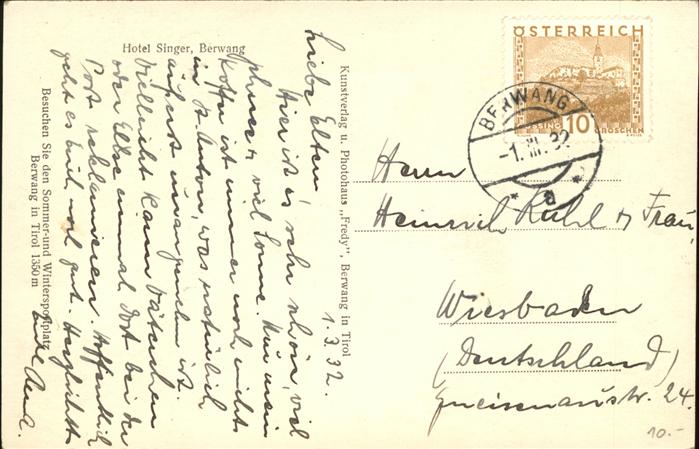 Hotel Singer, Berwang
Liebe Eltern,
1.3.32.
Hier ist es sehr schön, viel
Schnee & viel Sonne. Nur mein
Koffer ist immer noch nicht
in St. Anton, was natürlich
äußerst unangenehm ist.
Vielleicht kann Väterchen
oder Ellse einmal dort bei der
Post reklamieren. Hoffentlich
geht es Euch noch gut. Herzlichst
Besuchen Sie den Sommer-und Wintersportplatz
Berwang in Tirol 1350 m
Kunstverlag u. Photohaus „Fredy", Berwang in Tirol
ÖSTERREICH
10
GROSCHEN
BERWANG
-1. III. 32
* a *
Herrn
Heinrich Kühl & Frau,
Wiesbaden
(Deutschland)
Gneisenaustr. 24
10.-